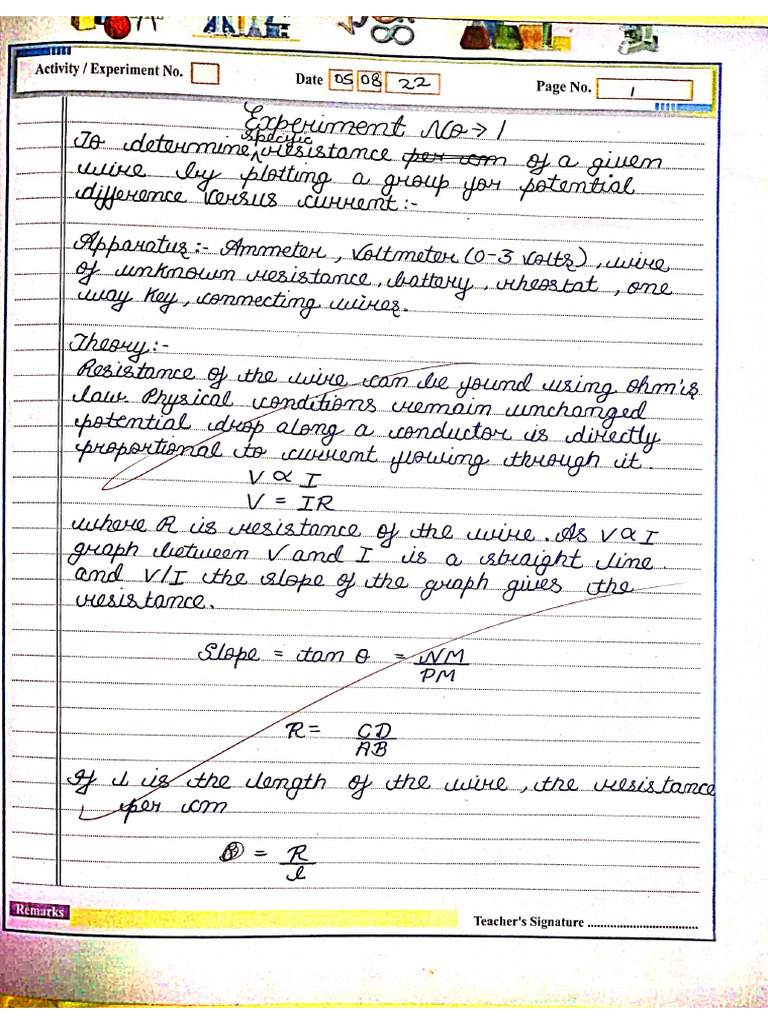 Activity / Experiment No.
Date 05 08 22
Page No. 1
Experiment No → 1
To determine specific resistance per cm of a given
wire by plotting a group for potential
difference versus current :-
Apparatus :- Ammeter, Voltmeter (0-3 volts), wire
of unknown resistance, battery, rheostat, one
way key, connecting wires.
Theory :-
Resistance of the wire can be found using Ohm's
law. Physical conditions remain unchanged
potential drop along a conductor is directly
proportional to current flowing through it.
V ∝ I
V = IR
where R is resistance of the wire. As V ∝ I
graph between V and I is a straight line
and V/I the slope of the graph gives the
resistance.
Slope = tan θ = NM
PM
R = CD
AB
If l is the length of the wire, the resistance
per cm
= R
l
Remarks
Teacher's Signature ..................................